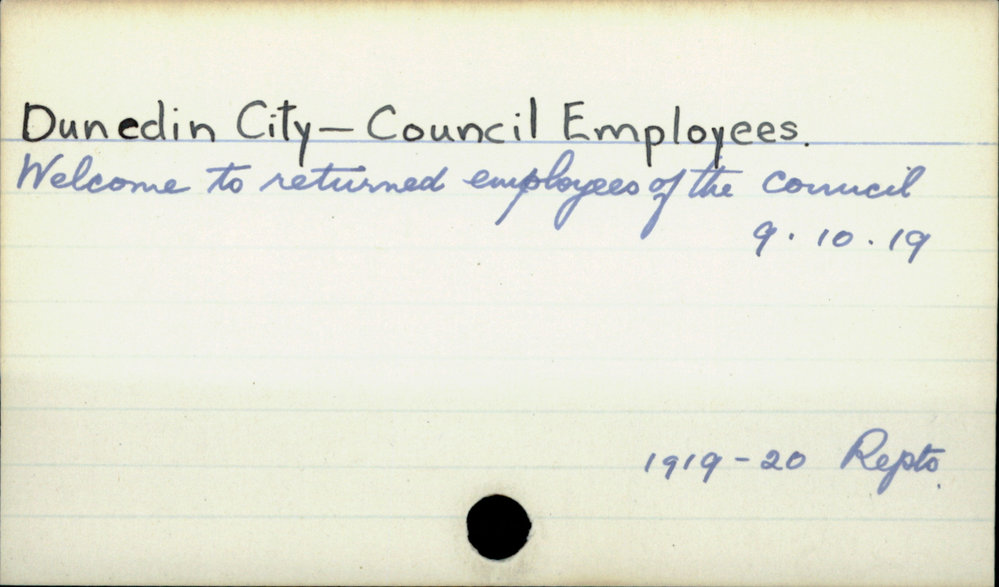 Dunedin City – Council Employees.
Welcome to returned employees of the council
9.10.19
1919-20 Repts.